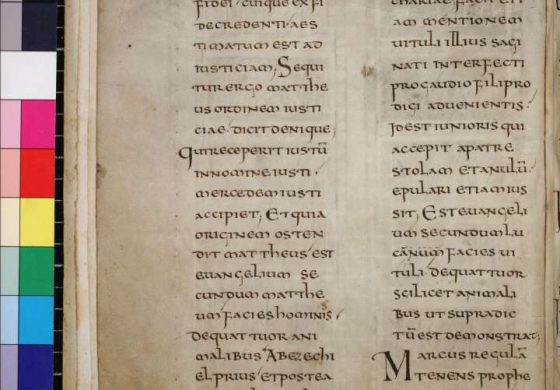 fidei · cuique ex fi
de credenti · aes
timatum est ad
iusticiam; Sequi
tur ergo matthe
us ordinem iusti
ciae · dicit denique;
qui receperit iustū
in nomine iusti ·
mercedem iusti
accipiet; Et quia
originem osten
dit mattheus · est
euangelium se
cundum matthe
um facies hominis;
De quattuor ani
malibus Abezechi
el prius · et postea
am mentionem
uituli illius sagi
nati interfecti
pro gaudio filii pro
digi aduenientis;
Id est iunioris qui
accepit a patre
stolam et anulū
epulari etiam ius
sit; Est euangeli
um secundum lu
canum facies ui
tuli · de quattuor
scilicet animali
bus ut supra dic
tū est demonstrat;
Marcus regulā
tenens prophe